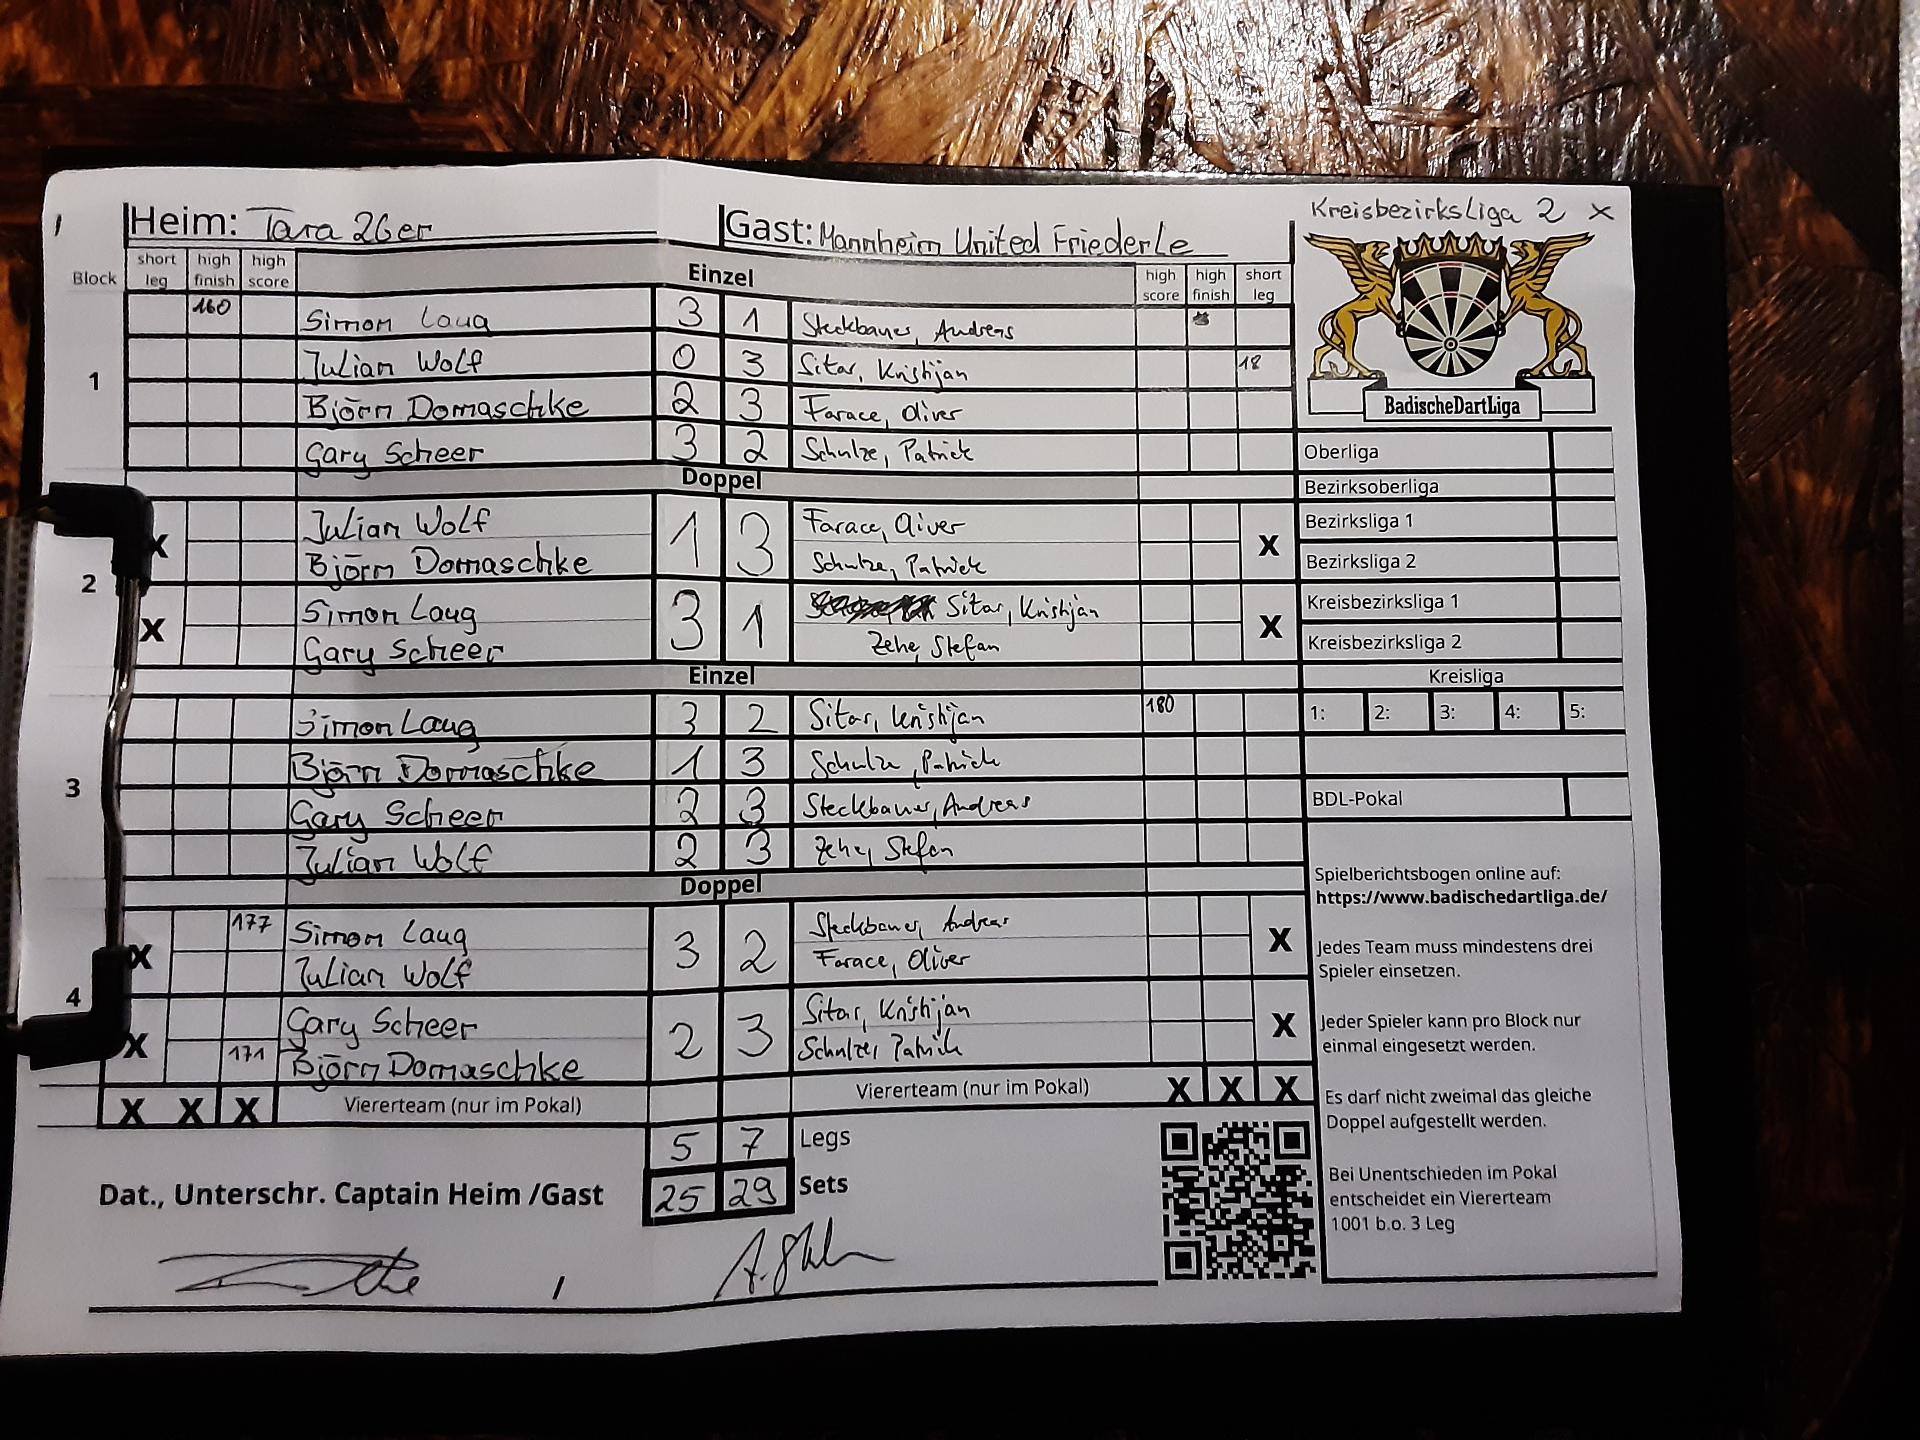 Heim: Tara 26er Gast: Mannheim United Friederle Kreisbezirksliga 2 x
Block short leg high finish high score Einzel high score high finish short leg
1
160 Simon Laug 3 1 Steckbauer, Andreas
Julian Wolf 0 3 Sitar, Kristijan 18
Björn Domaschke 2 3 Farace, Oliver
Gary Scheer 3 2 Schulze, Patrick
Doppel
2
X Julian Wolf 1 3 Farace, Oliver X
Björn Domaschke Schulze, Patrick
X Simon Laug 3 1 Sitar, Kristijan X
Gary Scheer Zehe, Stefan
Einzel
3
Simon Laug 3 2 Sitar, Kristijan 180
Björn Domaschke 1 3 Schulze, Patrick
Gary Scheer 2 3 Steckbauer, Andreas
Julian Wolf 2 3 Zehe, Stefan
Doppel
4
X 177 Simon Laug 3 2 Steckbauer, Andreas X
Julian Wolf Farace, Oliver
X Gary Scheer 2 3 Sitar, Kristijan X
171 Björn Domaschke Schulze, Patrick
X X X Viererteam (nur im Pokal) Viererteam (nur im Pokal) X X X
5 7 Legs
Dat., Unterschr. Captain Heim /Gast 25 29 Sets
/
BadischeDartLiga
Oberliga
Bezirksoberliga
Bezirksliga 1
Bezirksliga 2
Kreisbezirksliga 1
Kreisbezirksliga 2
Kreisliga
1: 2: 3: 4: 5:
BDL-Pokal
Spielberichtsbogen online auf:
https://www.badischedartliga.de/
Jedes Team muss mindestens drei
Spieler einsetzen.
Jeder Spieler kann pro Block nur
einmal eingesetzt werden.
Es darf nicht zweimal das gleiche
Doppel aufgestellt werden.
Bei Unentschieden im Pokal
entscheidet ein Viererteam
1001 b.o. 3 Leg